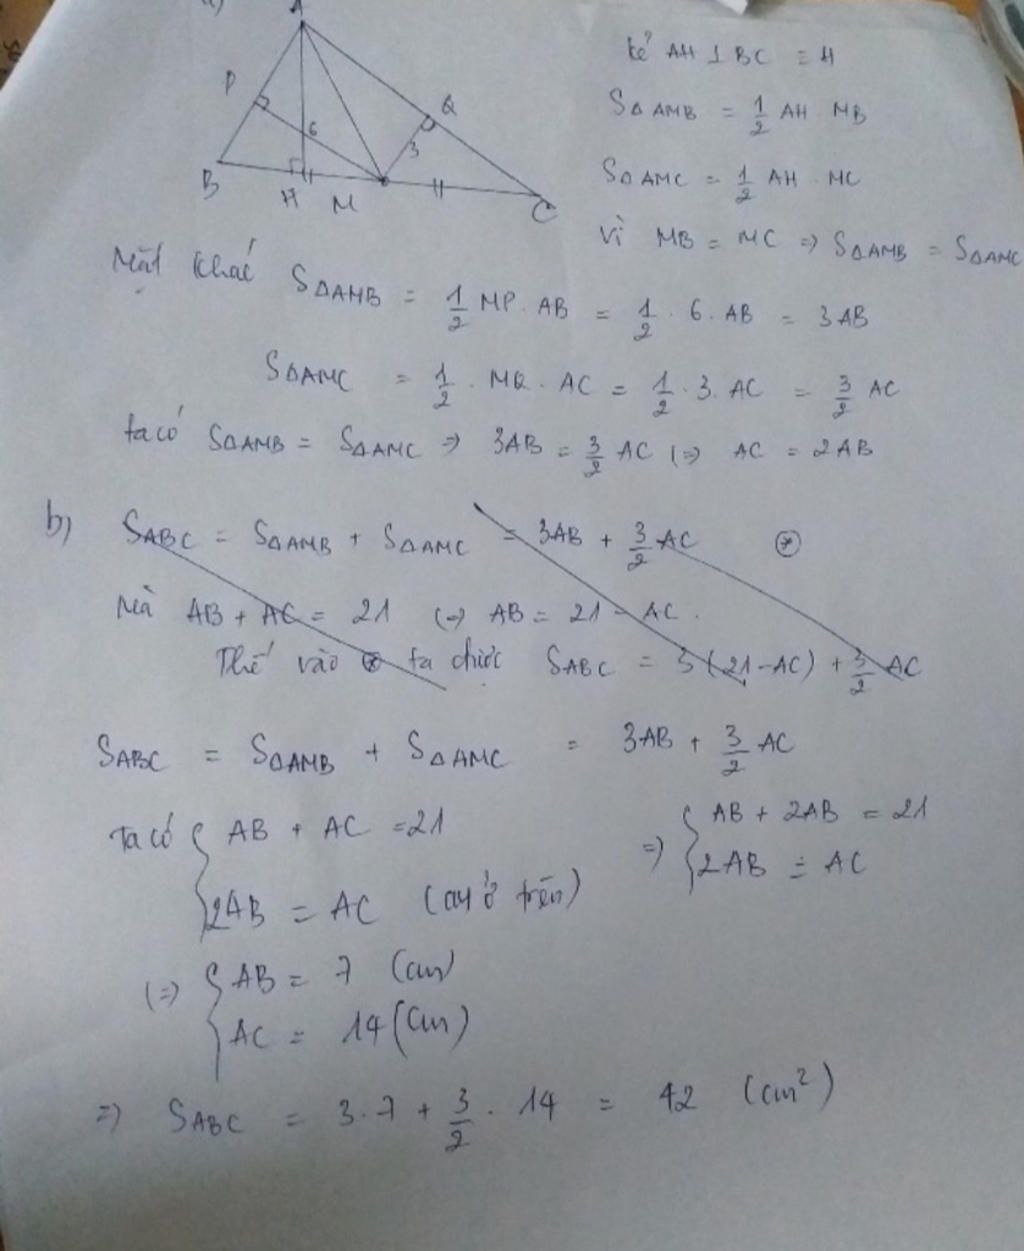 a)
A
P
Q
6
3
B
H
M
C
kẻ AH ⊥ BC = H
SΔAMB = 1/2 AH MB
SΔAMC = 1/2 AH . MC
Vì MB = MC => SΔAMB = SΔAMC
Mặt khác SΔAMB = 1/2 MP . AB = 1/2 . 6 . AB = 3AB
SΔAMC = 1/2 . MQ . AC = 1/2 . 3 . AC = 3/2 AC
ta có SΔAMB = SΔAMC => 3AB = 3/2 AC (=) AC = 2AB
b) SABC = SΔAMB + SΔAMC = 3AB + 3/2 AC (*)
Mà AB + AC = 21 (=) AB = 21 - AC .
Thế vào (*) ta được SABC = 3(21-AC) + 3/2 AC
SABC = SΔAMB + SΔAMC = 3AB + 3/2 AC
Ta có { AB + AC = 21 => { AB + 2AB = 21
2AB = AC ( ở trên) 2AB = AC
(=) { AB = 7 (cm)
AC = 14 (cm)
=) SABC = 3.7 + 3/2 . 14 = 42 (cm²)